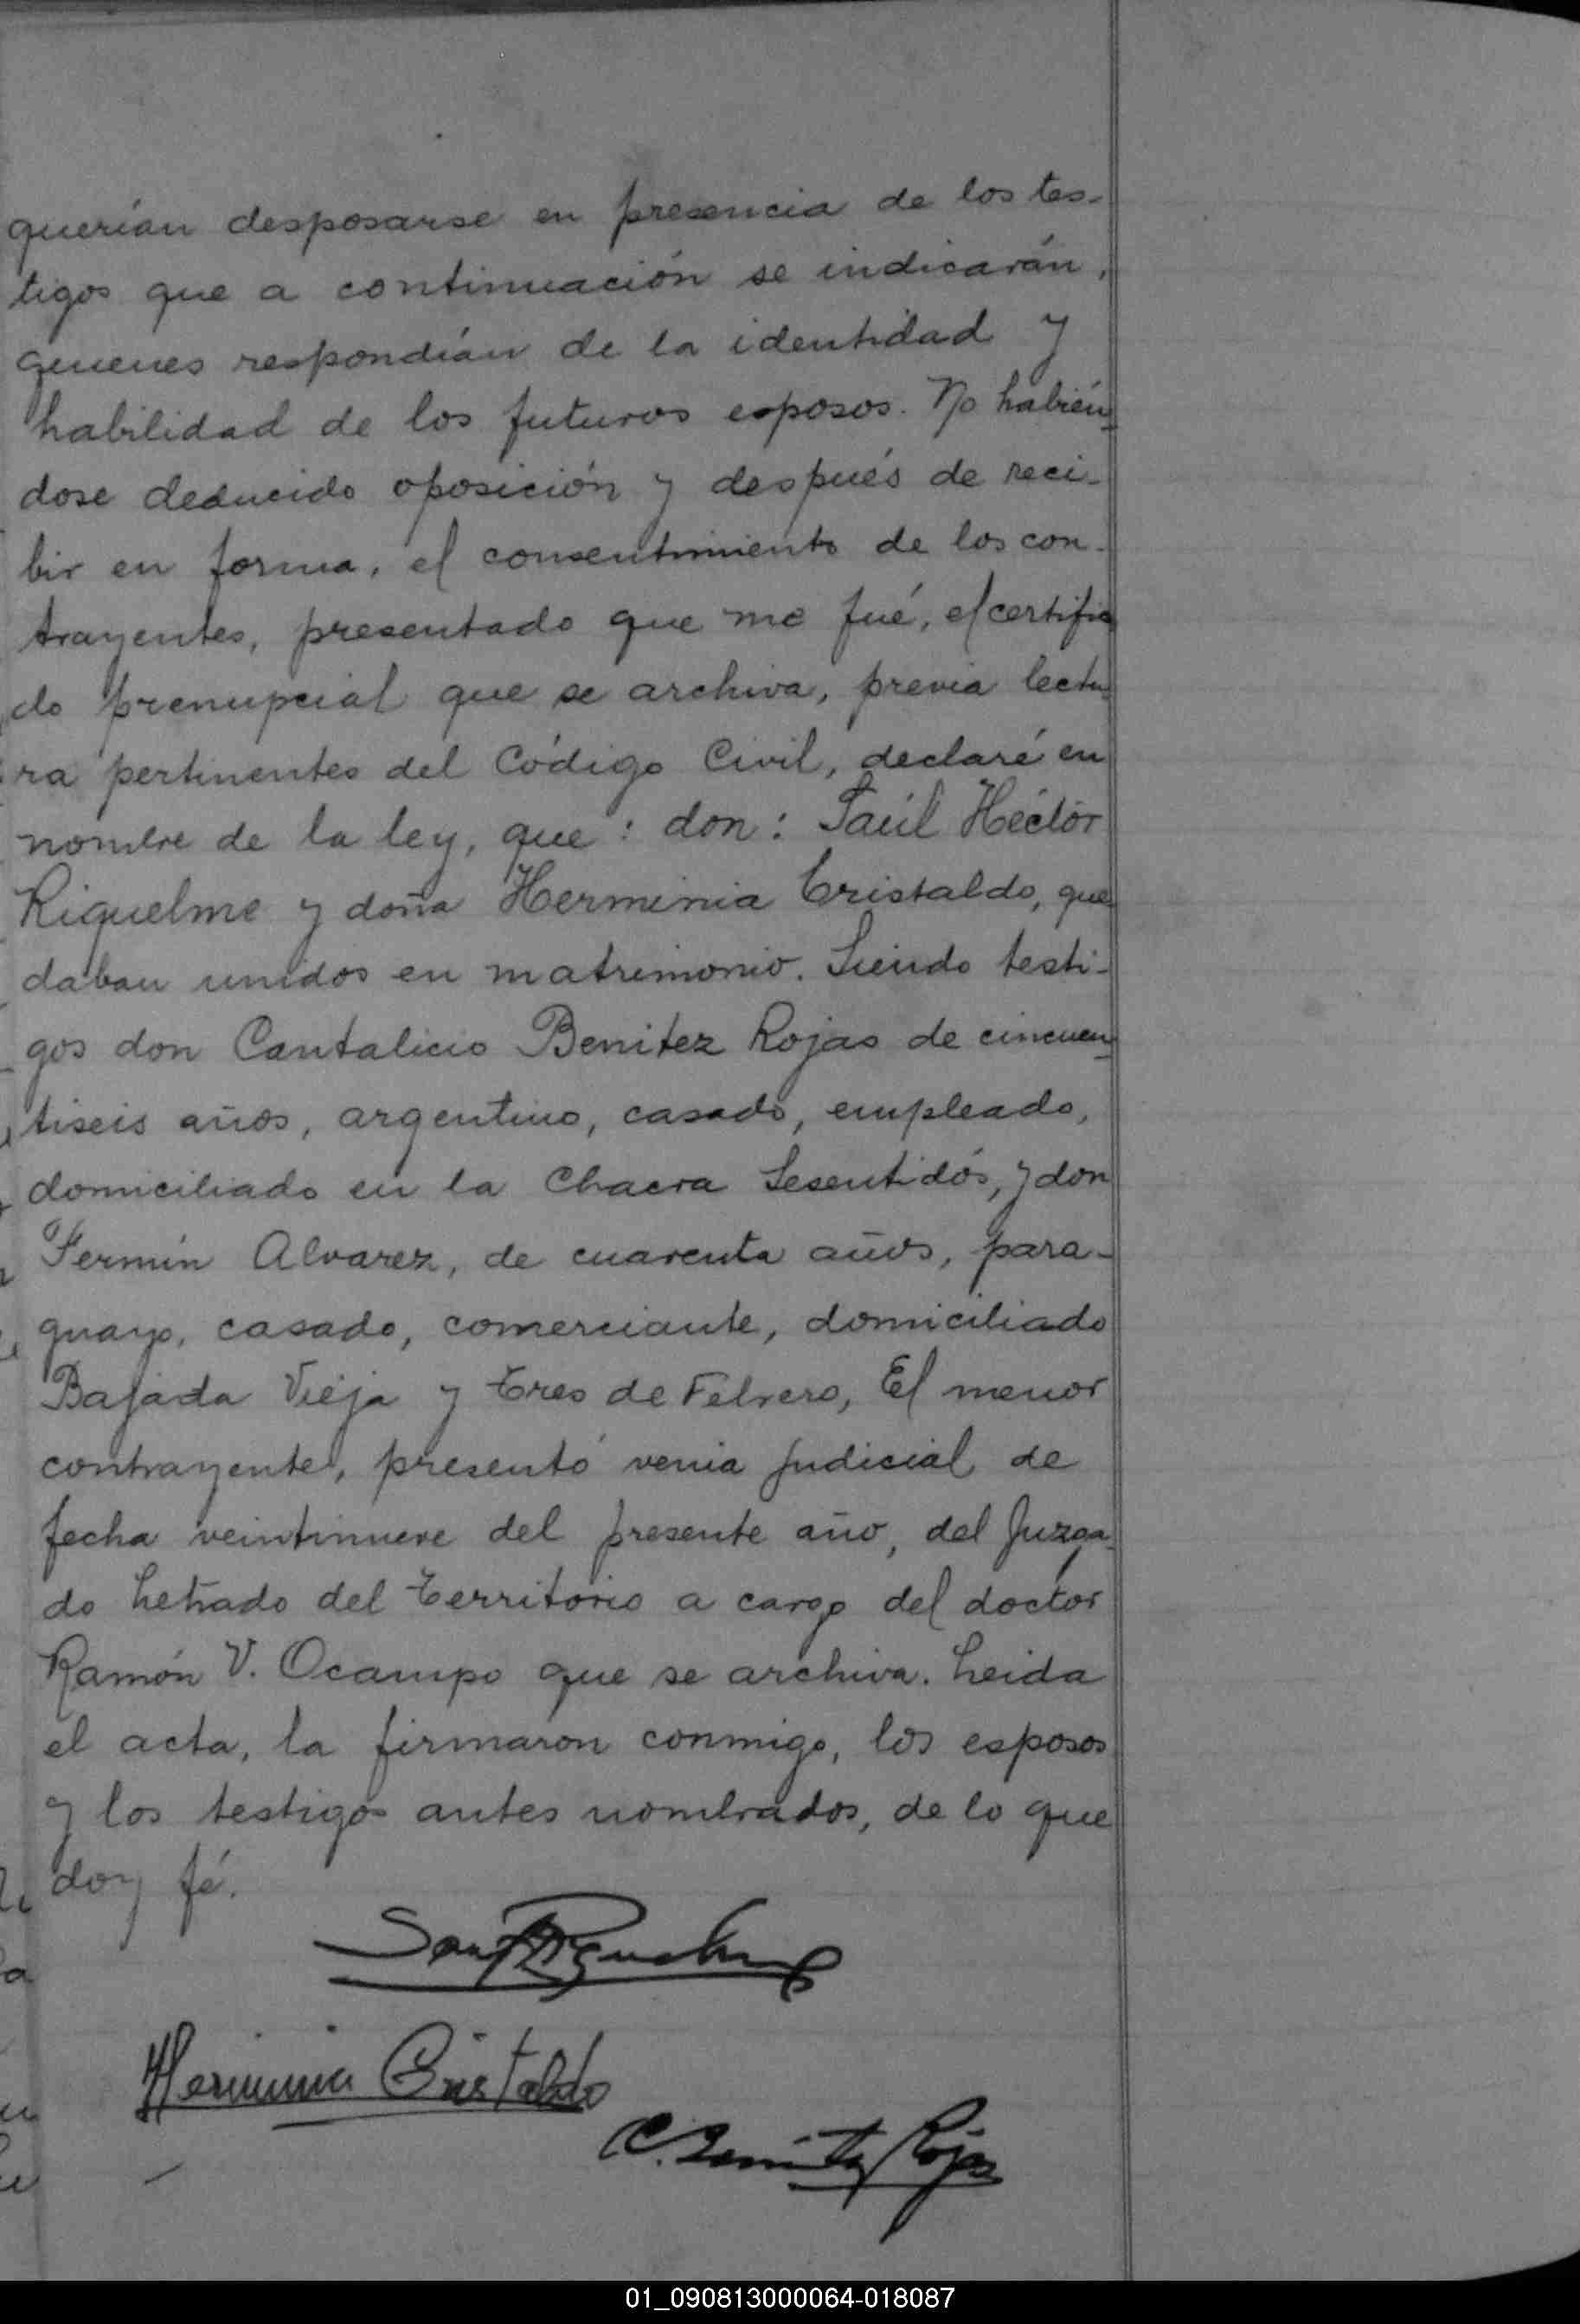 querían desposarse en presencia de los tes-
tigos que a continuación se indicarán,
quienes respondían de la identidad y
habilidad de los futuros esposos. No habién-
dose deducido oposición y después de reci-
bir en forma, el consentimiento de los con-
trayentes, presentado que me fué, el certifica
do prenupcial que se archiva, previa lectu-
ra pertinentes del Código Civil, declaré en
nombre de la ley, que: don: Saúl Héctor
Riquelme y doña Herminia Cristaldo, que
daban unidos en matrimonio. Siendo testi-
gos don Cantalicio Benitez Rojas de cincuen-
tiseis años, argentino, casado, empleado,
domiciliado en la Chacra Sesentidós, y don
Fermín Alvarez, de cuarenta años, para-
guayo, casado, comerciante, domiciliado
Bajada Vieja y Tres de Febrero, El menor
contrayente, presentó venia judicial de
fecha veintinueve del presente año, del Juzga-
do Letrado del Territorio a cargo del doctor
Ramón V. Ocampo que se archiva. Leida
el acta, la firmaron conmigo, los esposos
y los testigos antes nombrados, de lo que
doy fé.
Saul H Riquelme
Herminia Cristaldo
C. Benitez Rojas
01_090813000064-018087